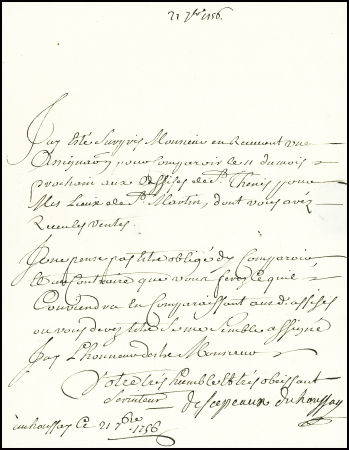 21 7bre 1756.
J'ay Eté Surpris Monsieur en Recevant une
Assignaōn pour Comparoir le 11 du mois
prochain aux assises de St. Thenis pour
Mes Lieux de St. Martin, dont vous avez
Receu les ventes.
Je ne pense pas être obligé d'y Comparoir
Et au Contraire que vous ferez ce qu'il
Conviendra En Comparaissant aux d. assises
ou vous devez être Se me Semble assigné
J'ay L'honneur destre Monsieur
Votre très humble Et très obeissant
Serviteur
descepeaux duhoussay
auhoussay ce 21 7bre
1756